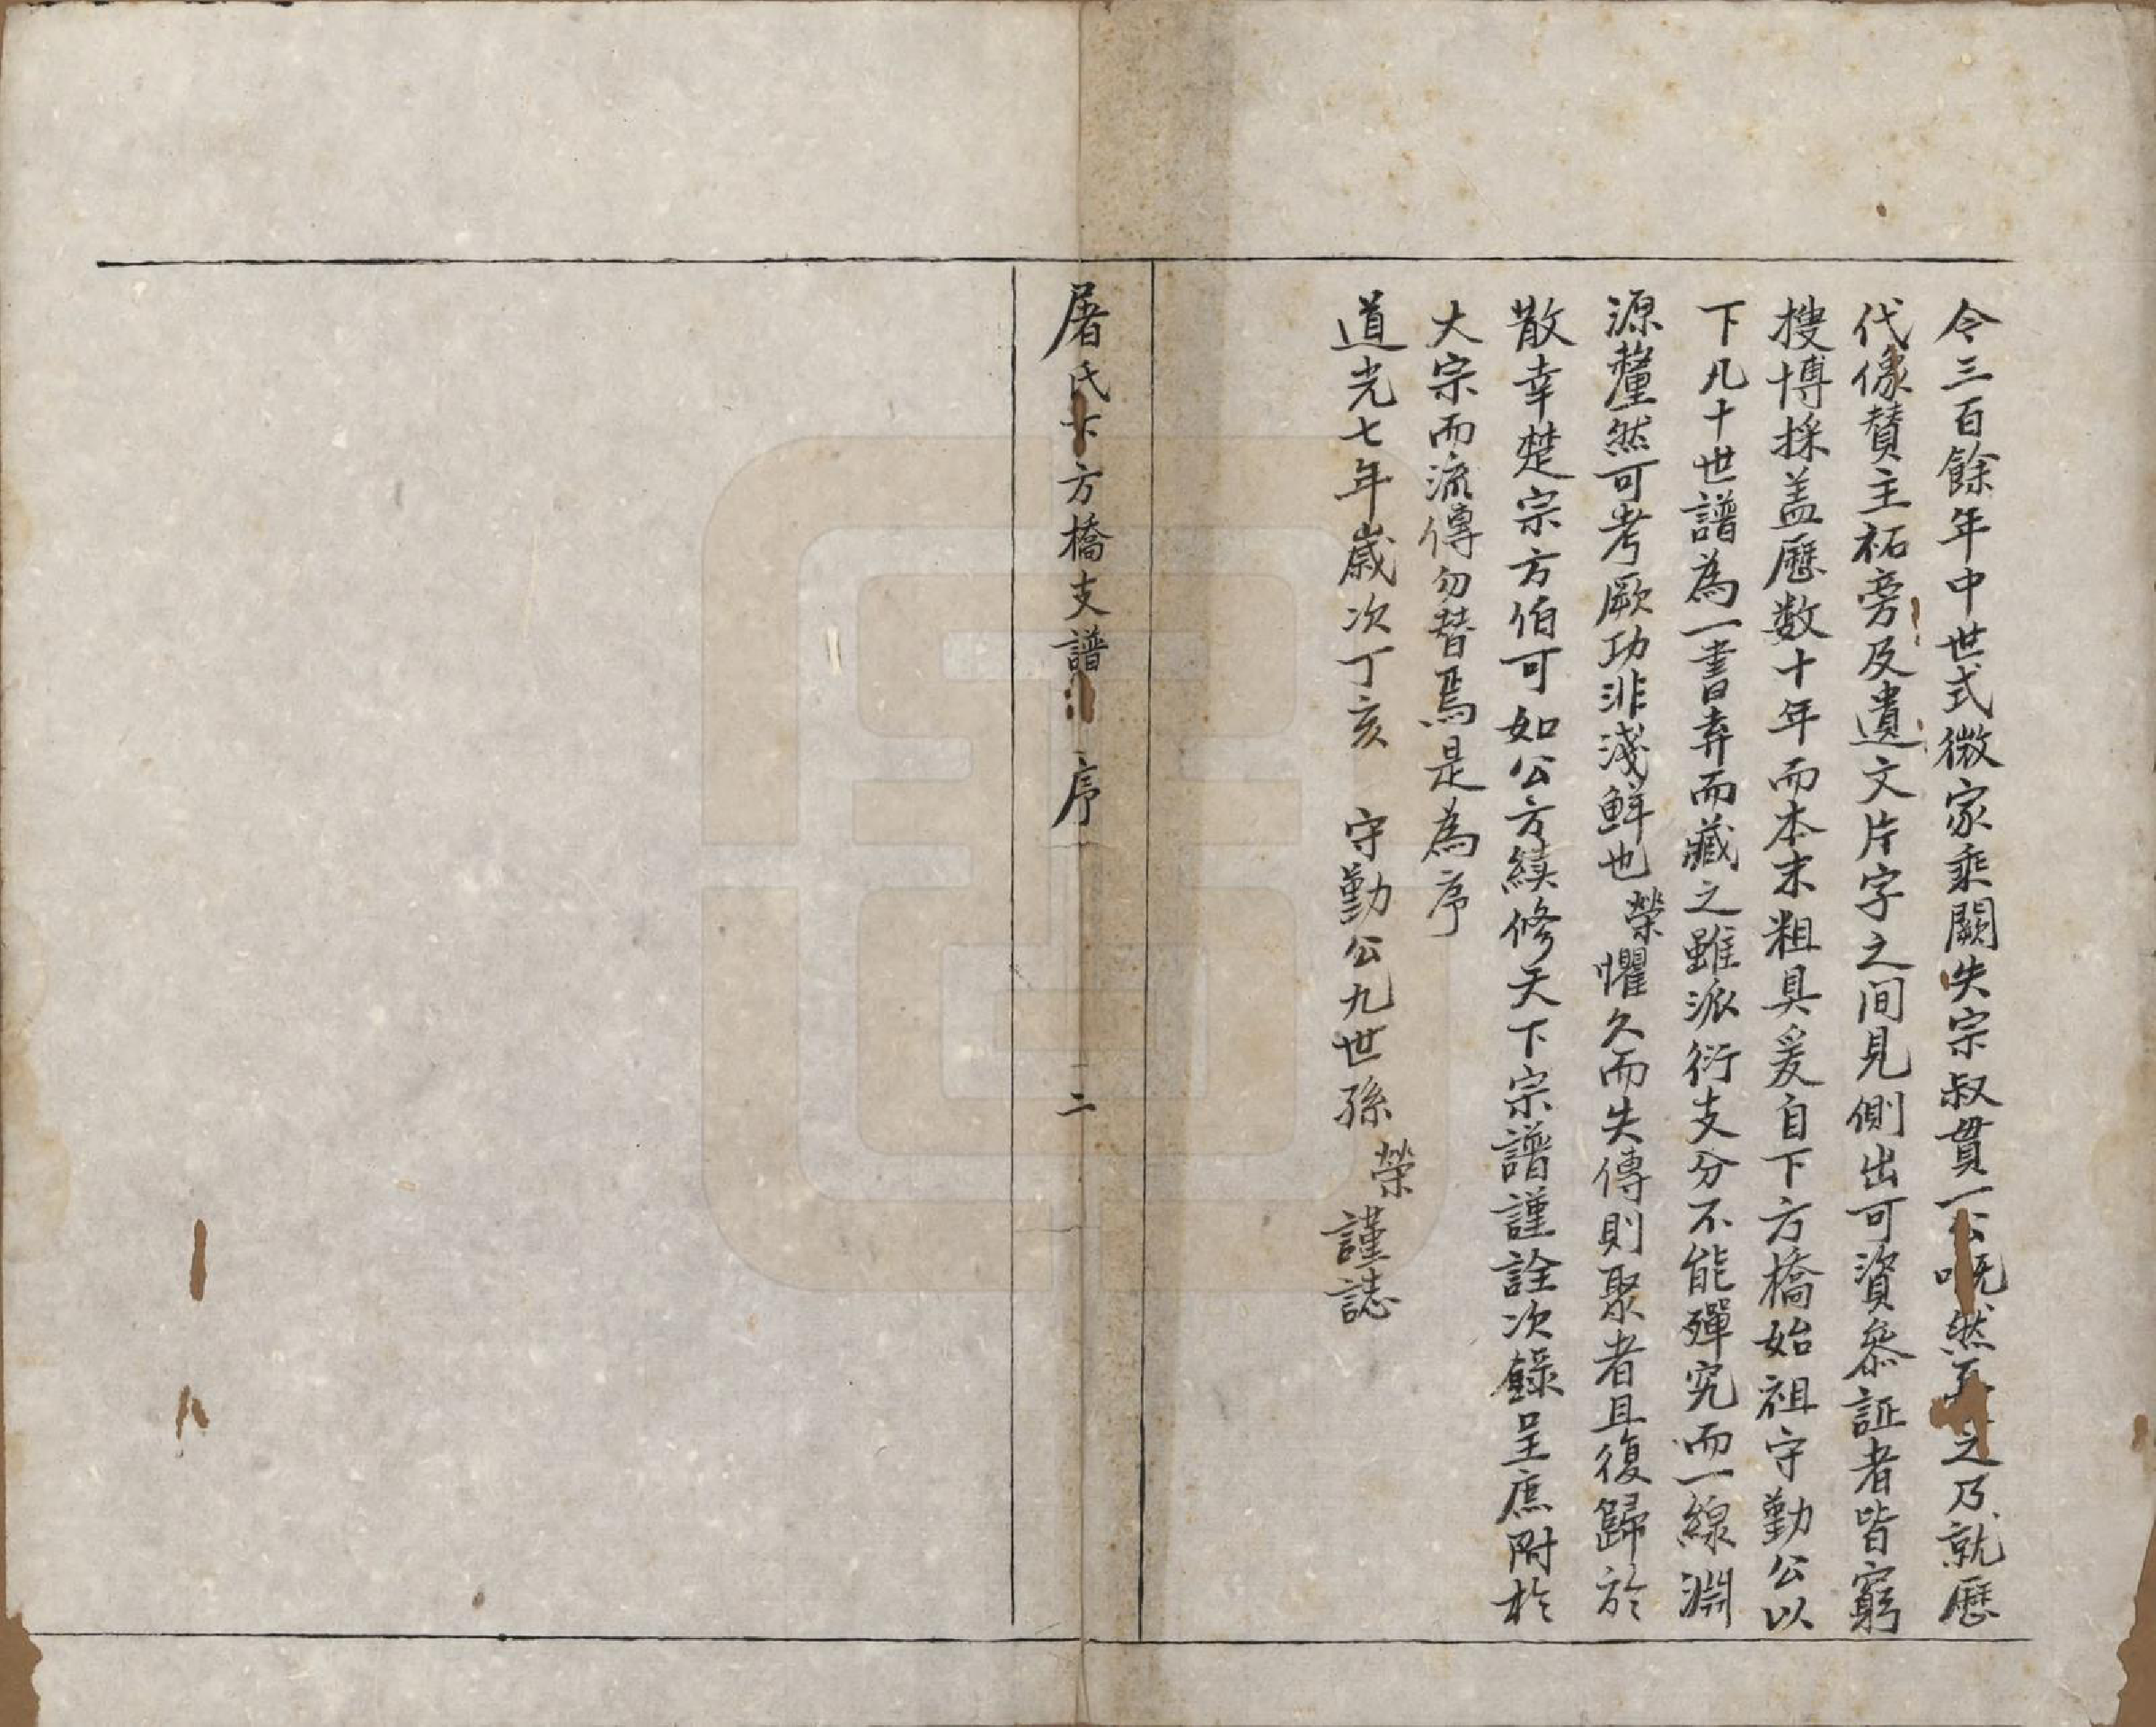 今三百餘年中世式微家乘闕失宗叔貫一公嘅然之乃就歷
代像賛主祏旁及遺文片字之间見側出可資叅証者皆窮
搜博採盖歷数十年而本末粗具爰自下方橋始祖守勤公以
下凡十世譜為一書弆而藏之雖派衍支分不能殫究而一線淵
源釐然可考厥功非淺鮮也榮懼久而失傳則聚者且復歸於
散幸楚宗方伯可如公方續修天下宗譜謹詮次錄呈庶附於
大宗而流傳勿替焉是為序
道光七年歲次丁亥 守勤公九世孫榮謹誌
屠氏下方橋支譜 序 二